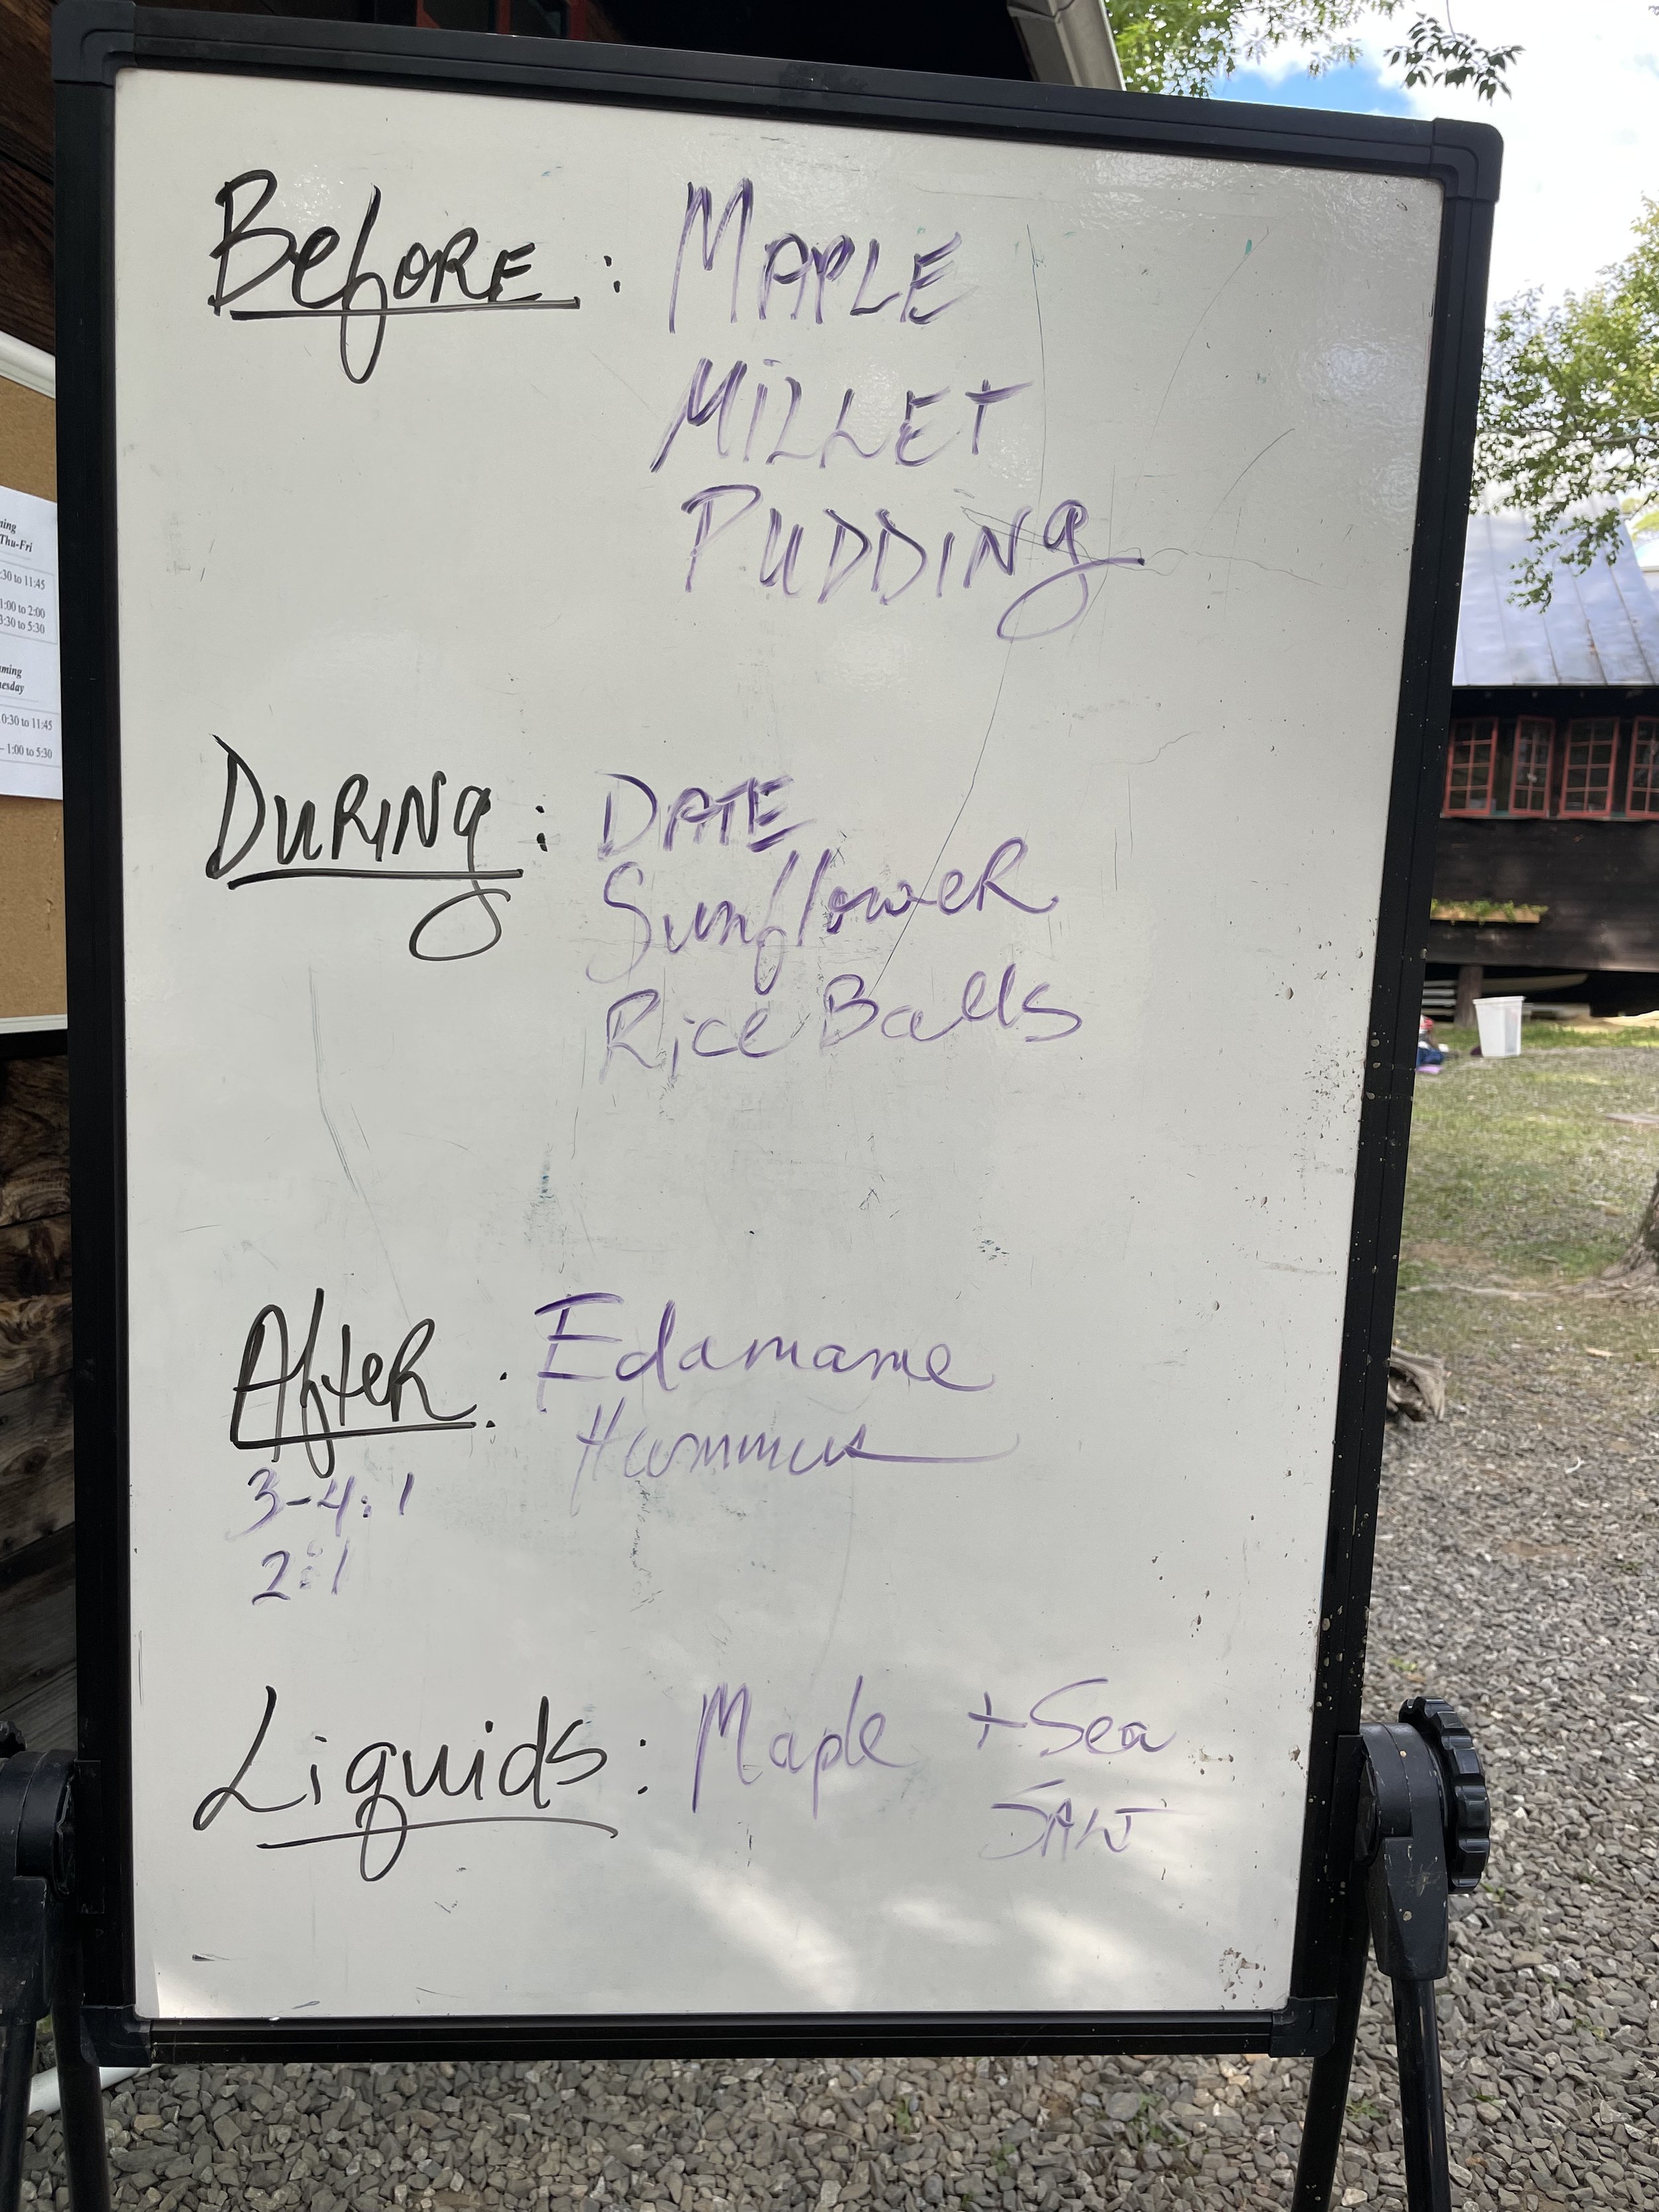 Before: MAPLE
MILLET
PUDDING
DURING: DATE
Sunflower
Rice Balls
After: Edamame
Hummus
3-4:1
2:1
Liquids: Maple + Sea
SALT
ming
Thu-Fri
:30 to 11:45
1:00 to 2:00
3:30 to 5:30
0:30 to 11:45
- 1:00 to 5:30